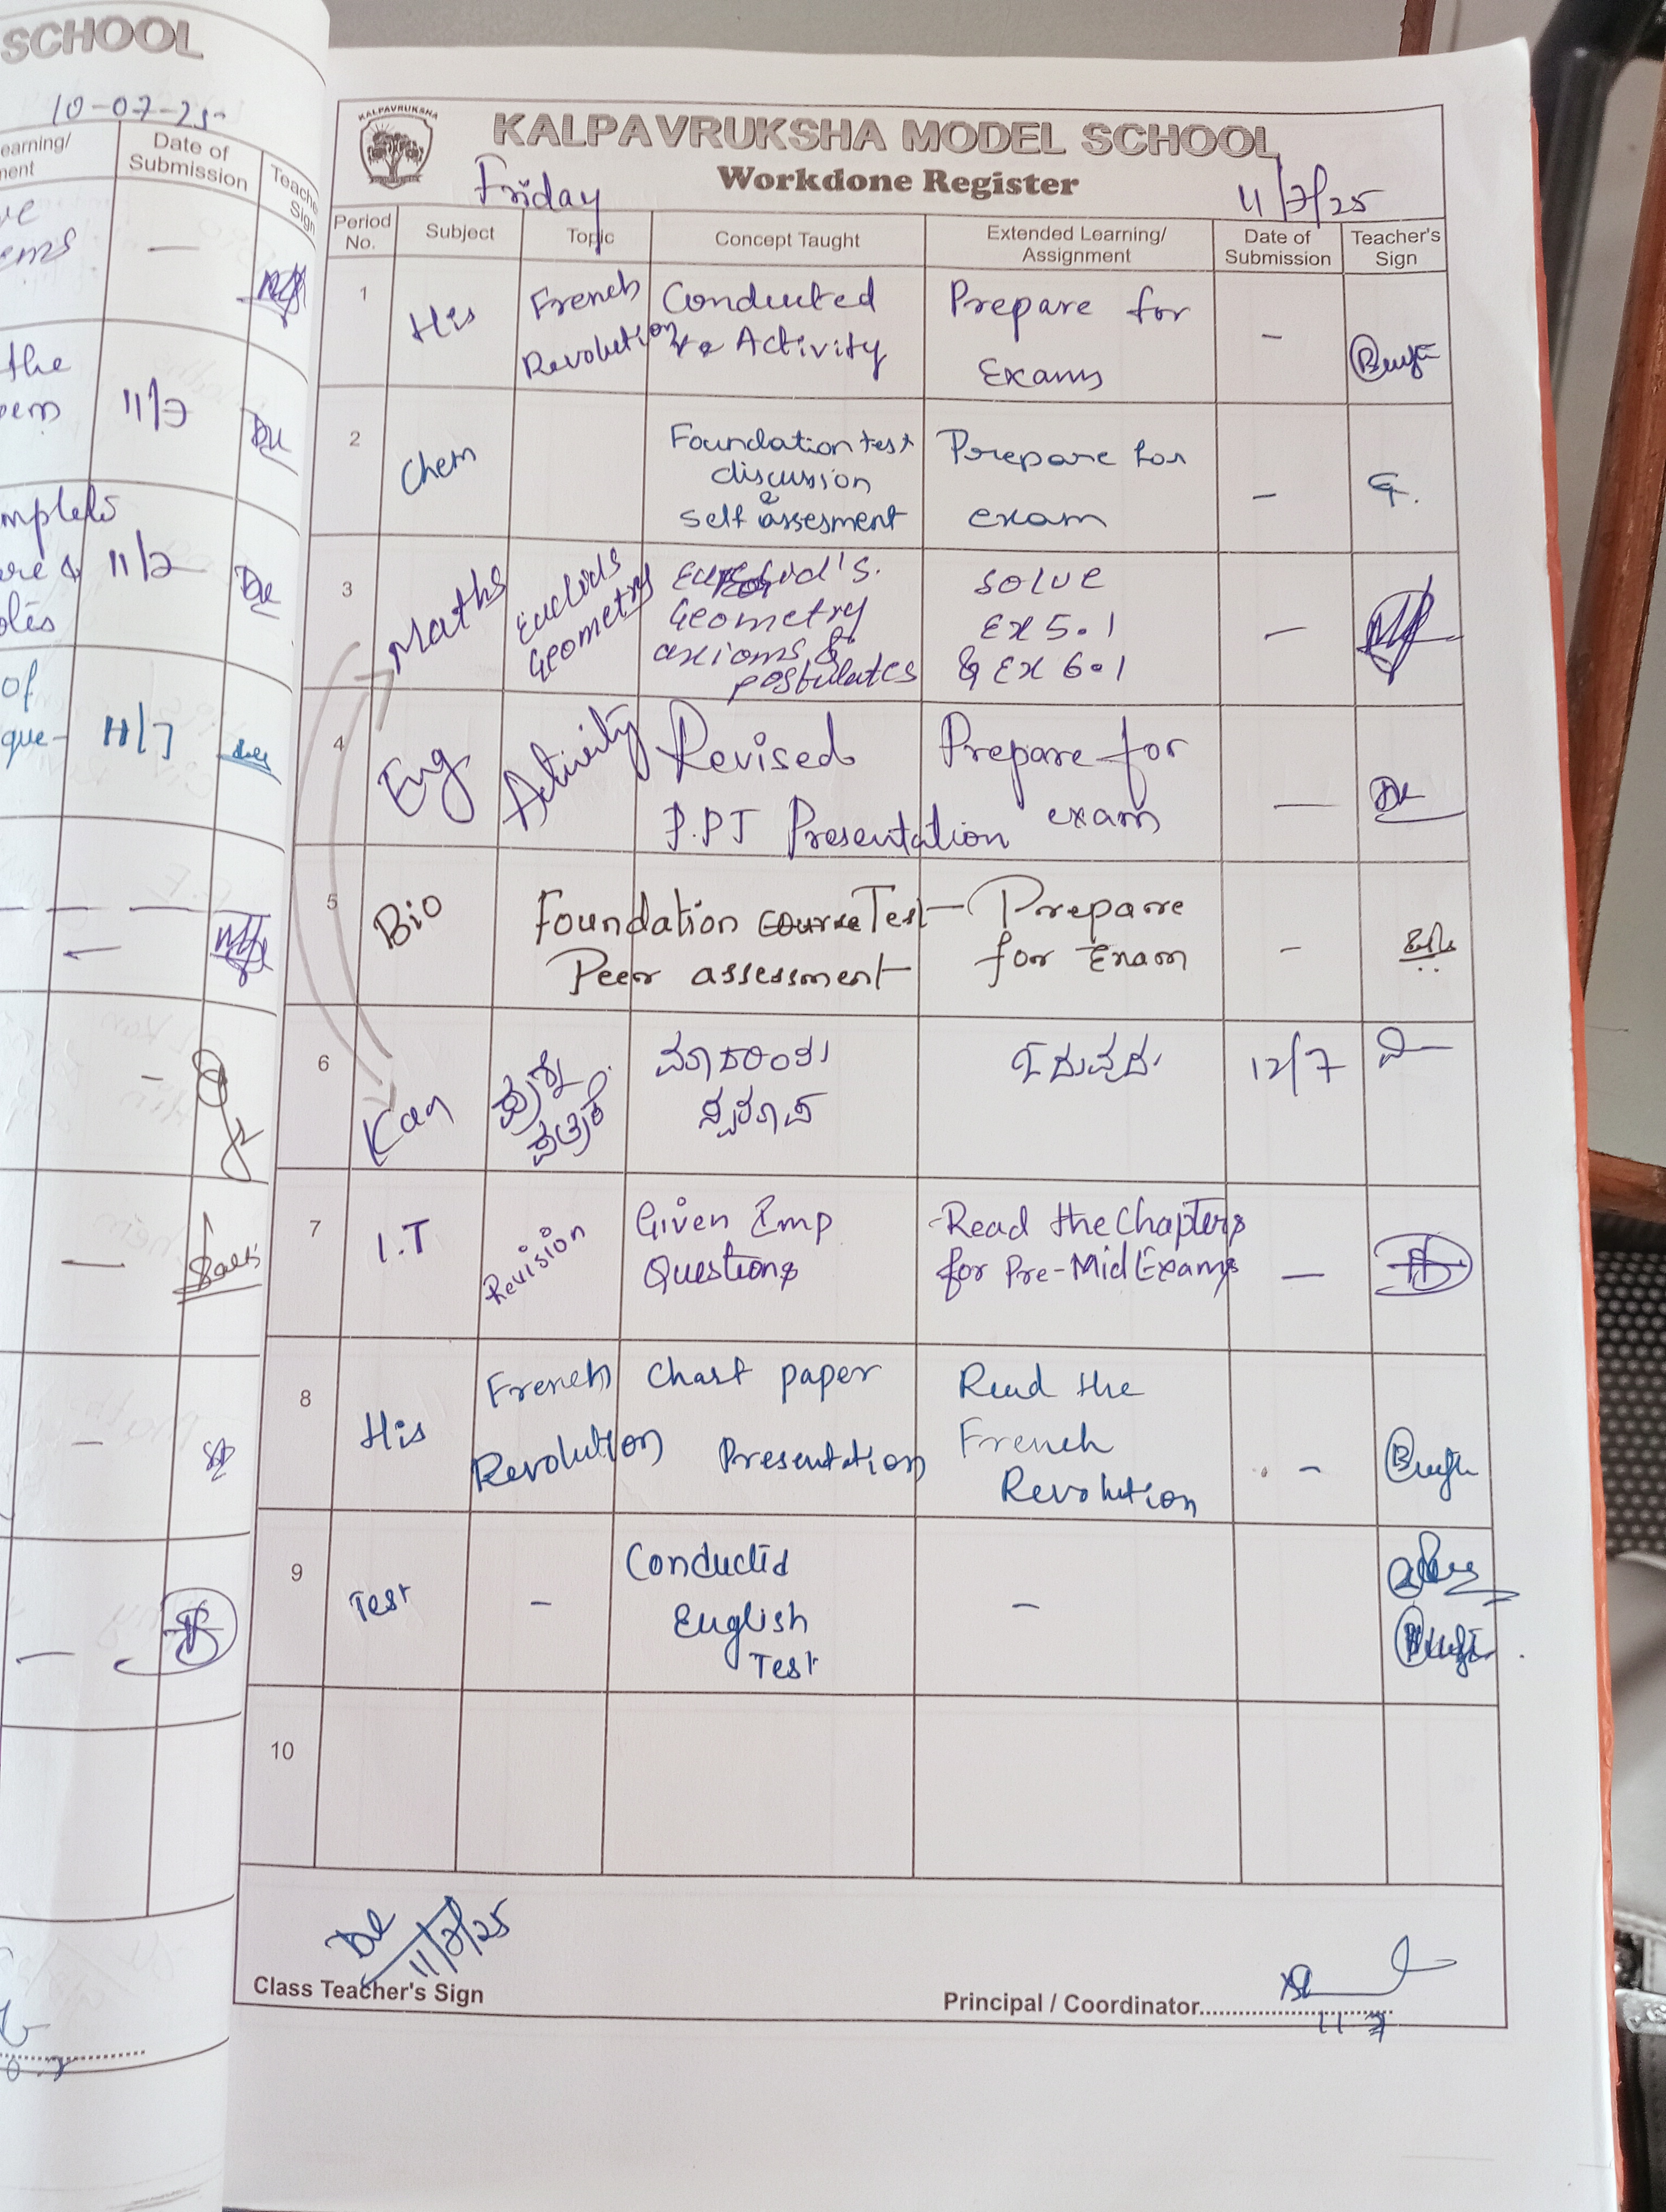 SCHOOL
10-07-25
earning/
ment
Date of
Submission
Teache
Sign
ve
ems
—
the
pem
11/7
mplete
are &
11/7
otes
of
que-
11/7
KALPAVRUKSHA
KALPAVRUKSHA MODEL SCHOOL
Workdone Register
Friday
11/7/25
Period No. Subject Topic Concept Taught Extended Learning/ Assignment Date of Submission Teacher's Sign
1 His French Revolution Conducted Activity Prepare for Exams -
2 Chem Foundation test discussion & self assesment Prepare for exam -
3 Maths Euclids Geometry Geometry axioms & postulates Solve Ex 5.1 & Ex 6.1 -
4 Eng Activity Revised P.P.T Presentation Prepare for exam —
5 Bio Foundation course Test Peer assessment Prepare for Exam -
6 Kan ಪ್ರಶ್ನೆ ಪತ್ರಿಕೆ 12/7
7 I.T Revision Given Imp Questions Read the Chapters for Pre-Mid Exams —
8 His French Revolution Chart paper Presentation Read the French Revolution -
9 Test - Conducted English Test -
10
11/7/25
Class Teacher's Sign
Principal / Coordinator
11 7